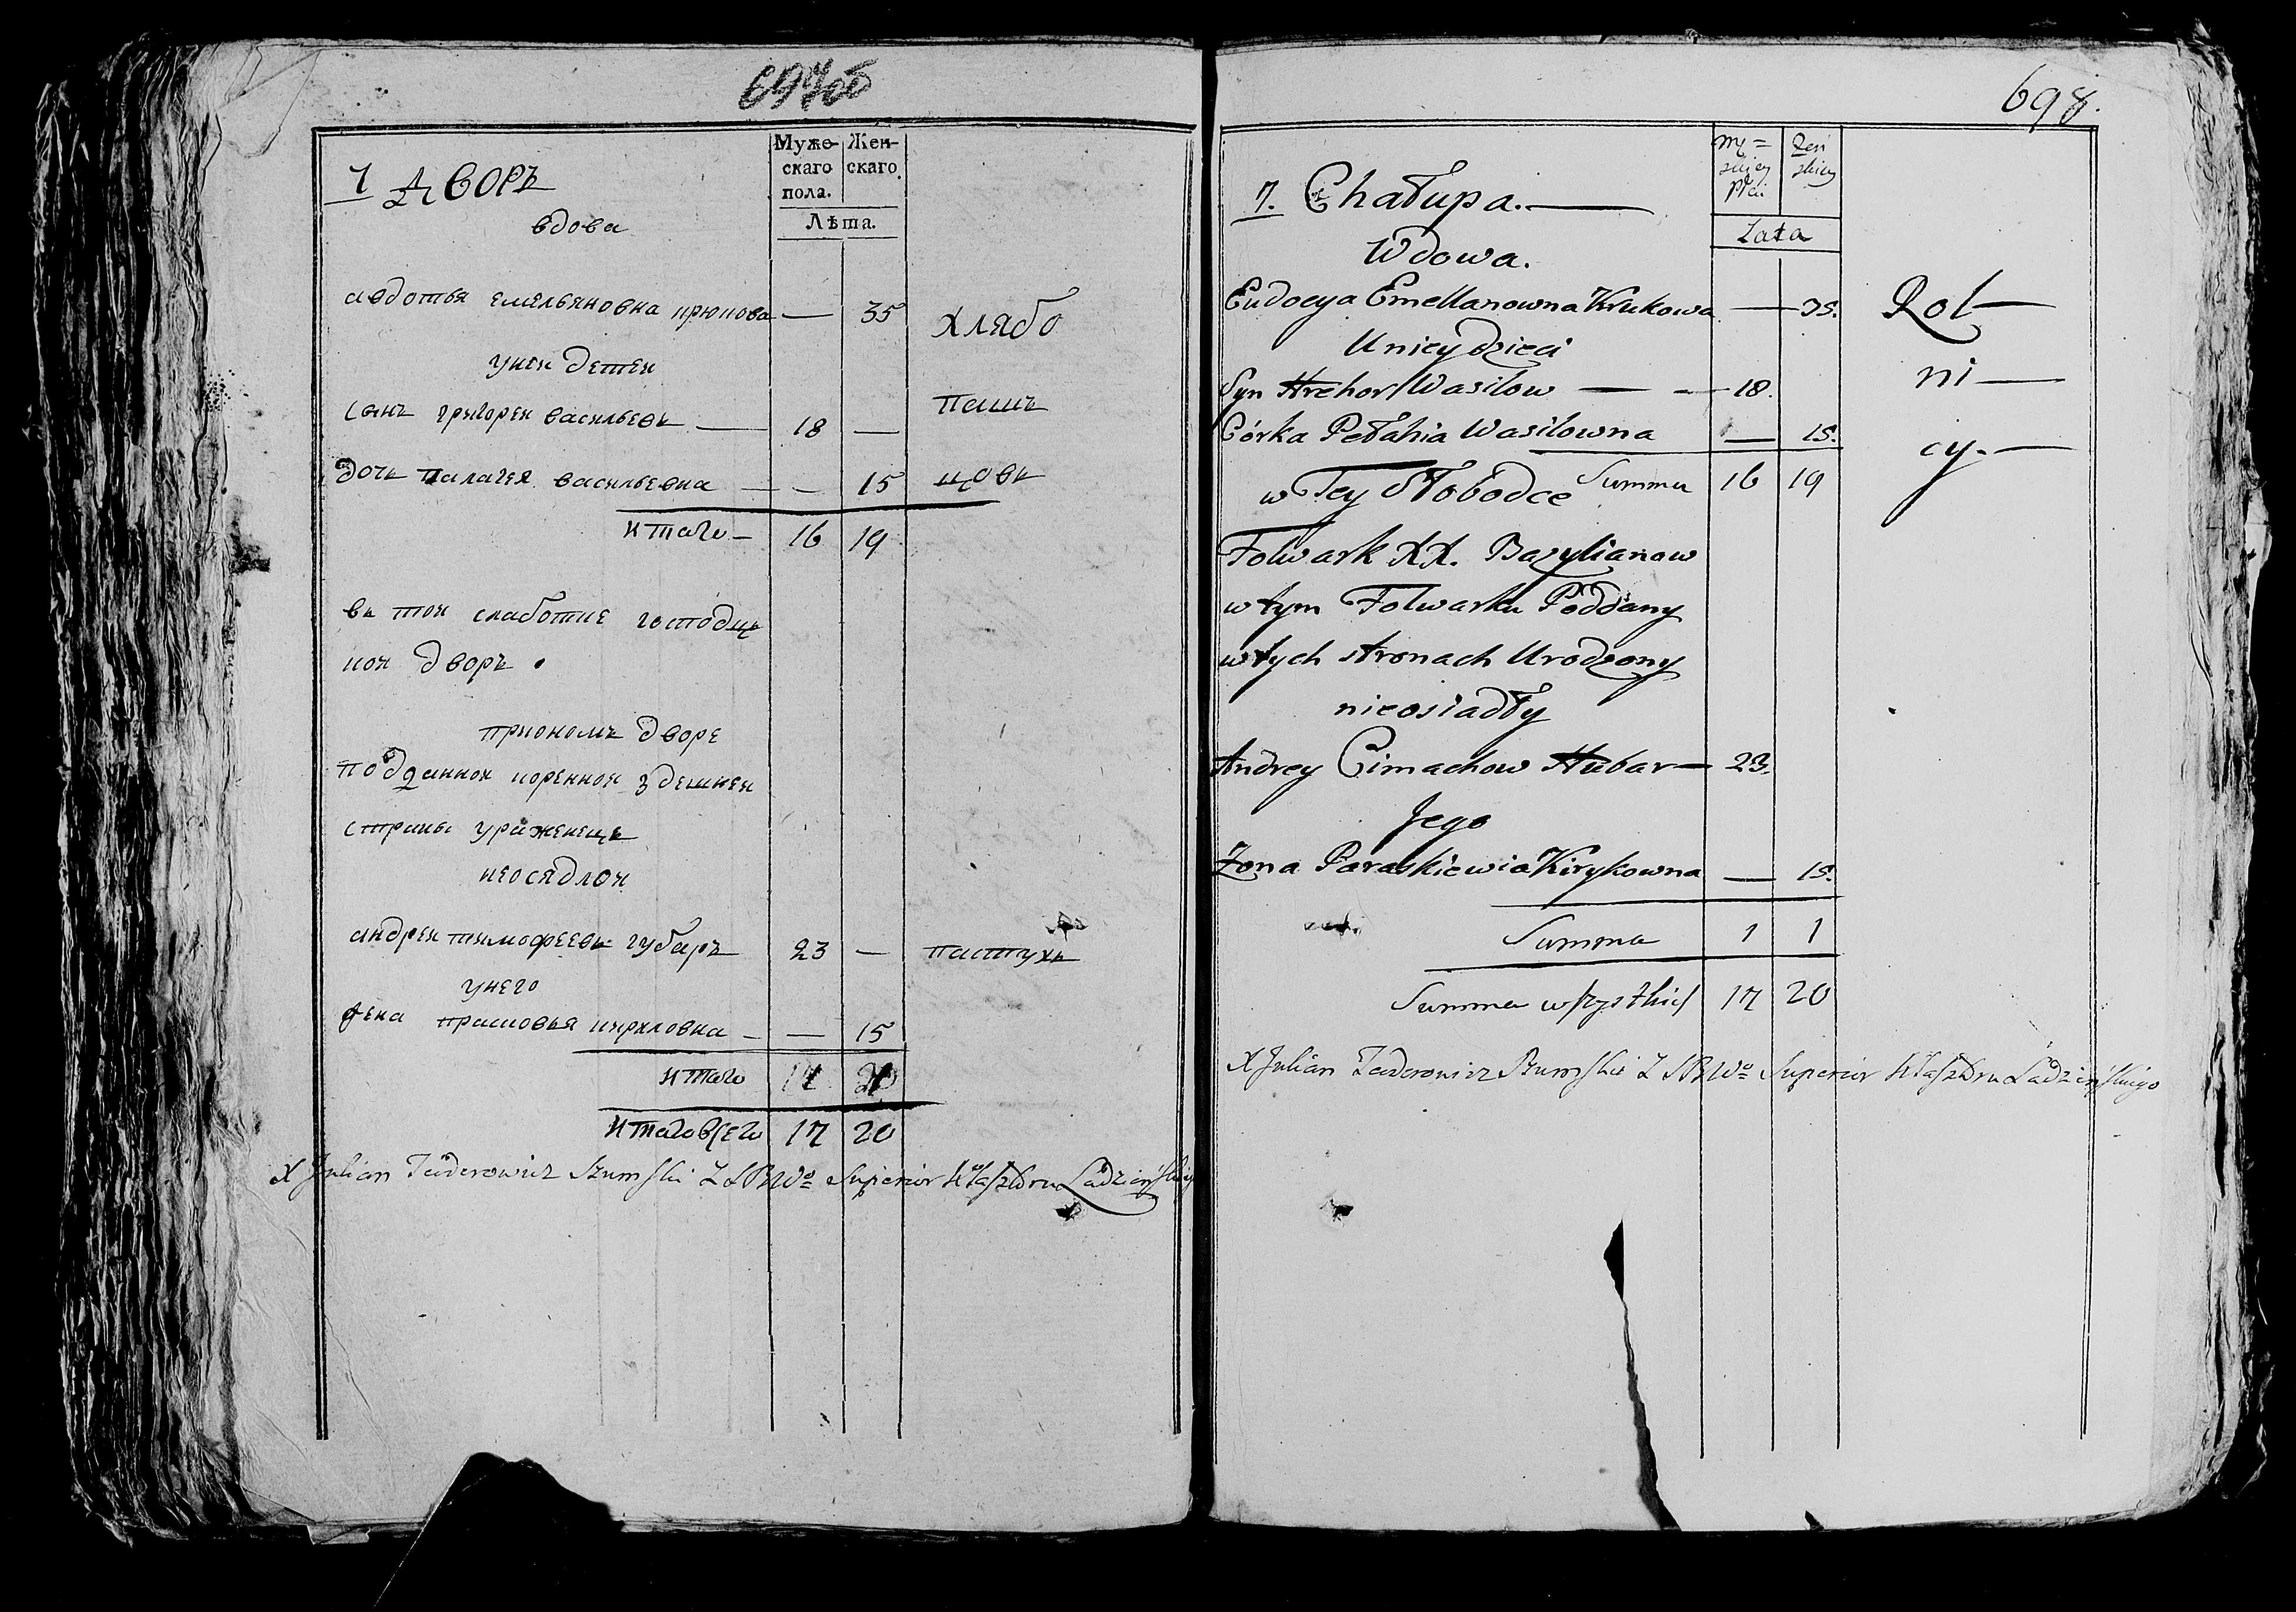 697об
7 дворъ
Муже-
скаго
пола.
Жен-
скаго.
Лѣта.
вдова
авдотья емельяновна крюкова — 35
хлябо
унеи детеи
сынъ григореи васильевъ — 18 —
пашъ
дочь палагея васильевна — — 15
цовъ
итаго — 16 19
въ тои слаботке господцъ
кои дворъ .
приономъ дворе
подданнои кореннои здешнеи
страны уроженецъ
неосядлои
андреи тимофеевъ губаръ 23 — пастухъ
унего
жена прасковья кириловна — — 15
итаго
итаговсего 17 20
X Julian Teodorowicz Szumski Z S B Wo Superior Klasztoru Ladzińskiego
698.
7. Chałupa. —
Mę=
zkiey
Płci
Żeń
skiey
Lata
Wdowa.
Eudocya Emellanowna Krukowa — 35.
Rol —
Uniey dzieci
Syn Hrehor Wasilow — — 18.
ni —
Córka Pełahia Wasilowna — 15.
cy. —
w Tey Słobodce Summa 16 19
Folwark XX. Bazylianow
w tym Folwarku Poddany
w tych stronach Urodzony
nieosiadły
Andrey Cimachow Hubar — 23.
Jego
Żona Paraskiewia Kirykowna — 15.
Summa 1 1
Summa wszystkich 17 20
X Julian Teodorowicz Szumski Z S B Wo Superior Klasztoru Ladzińskiego